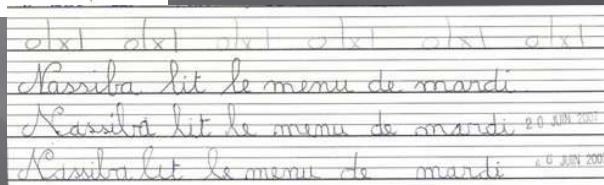 o|x| o|x| o|x| o|x| o|x| o|x|
Nassiba lit le menu de mardi
Nassiba lit le menu de mardi 20 JUIN 200
Nassiba lit le menu de mardi 20 JUIN 200